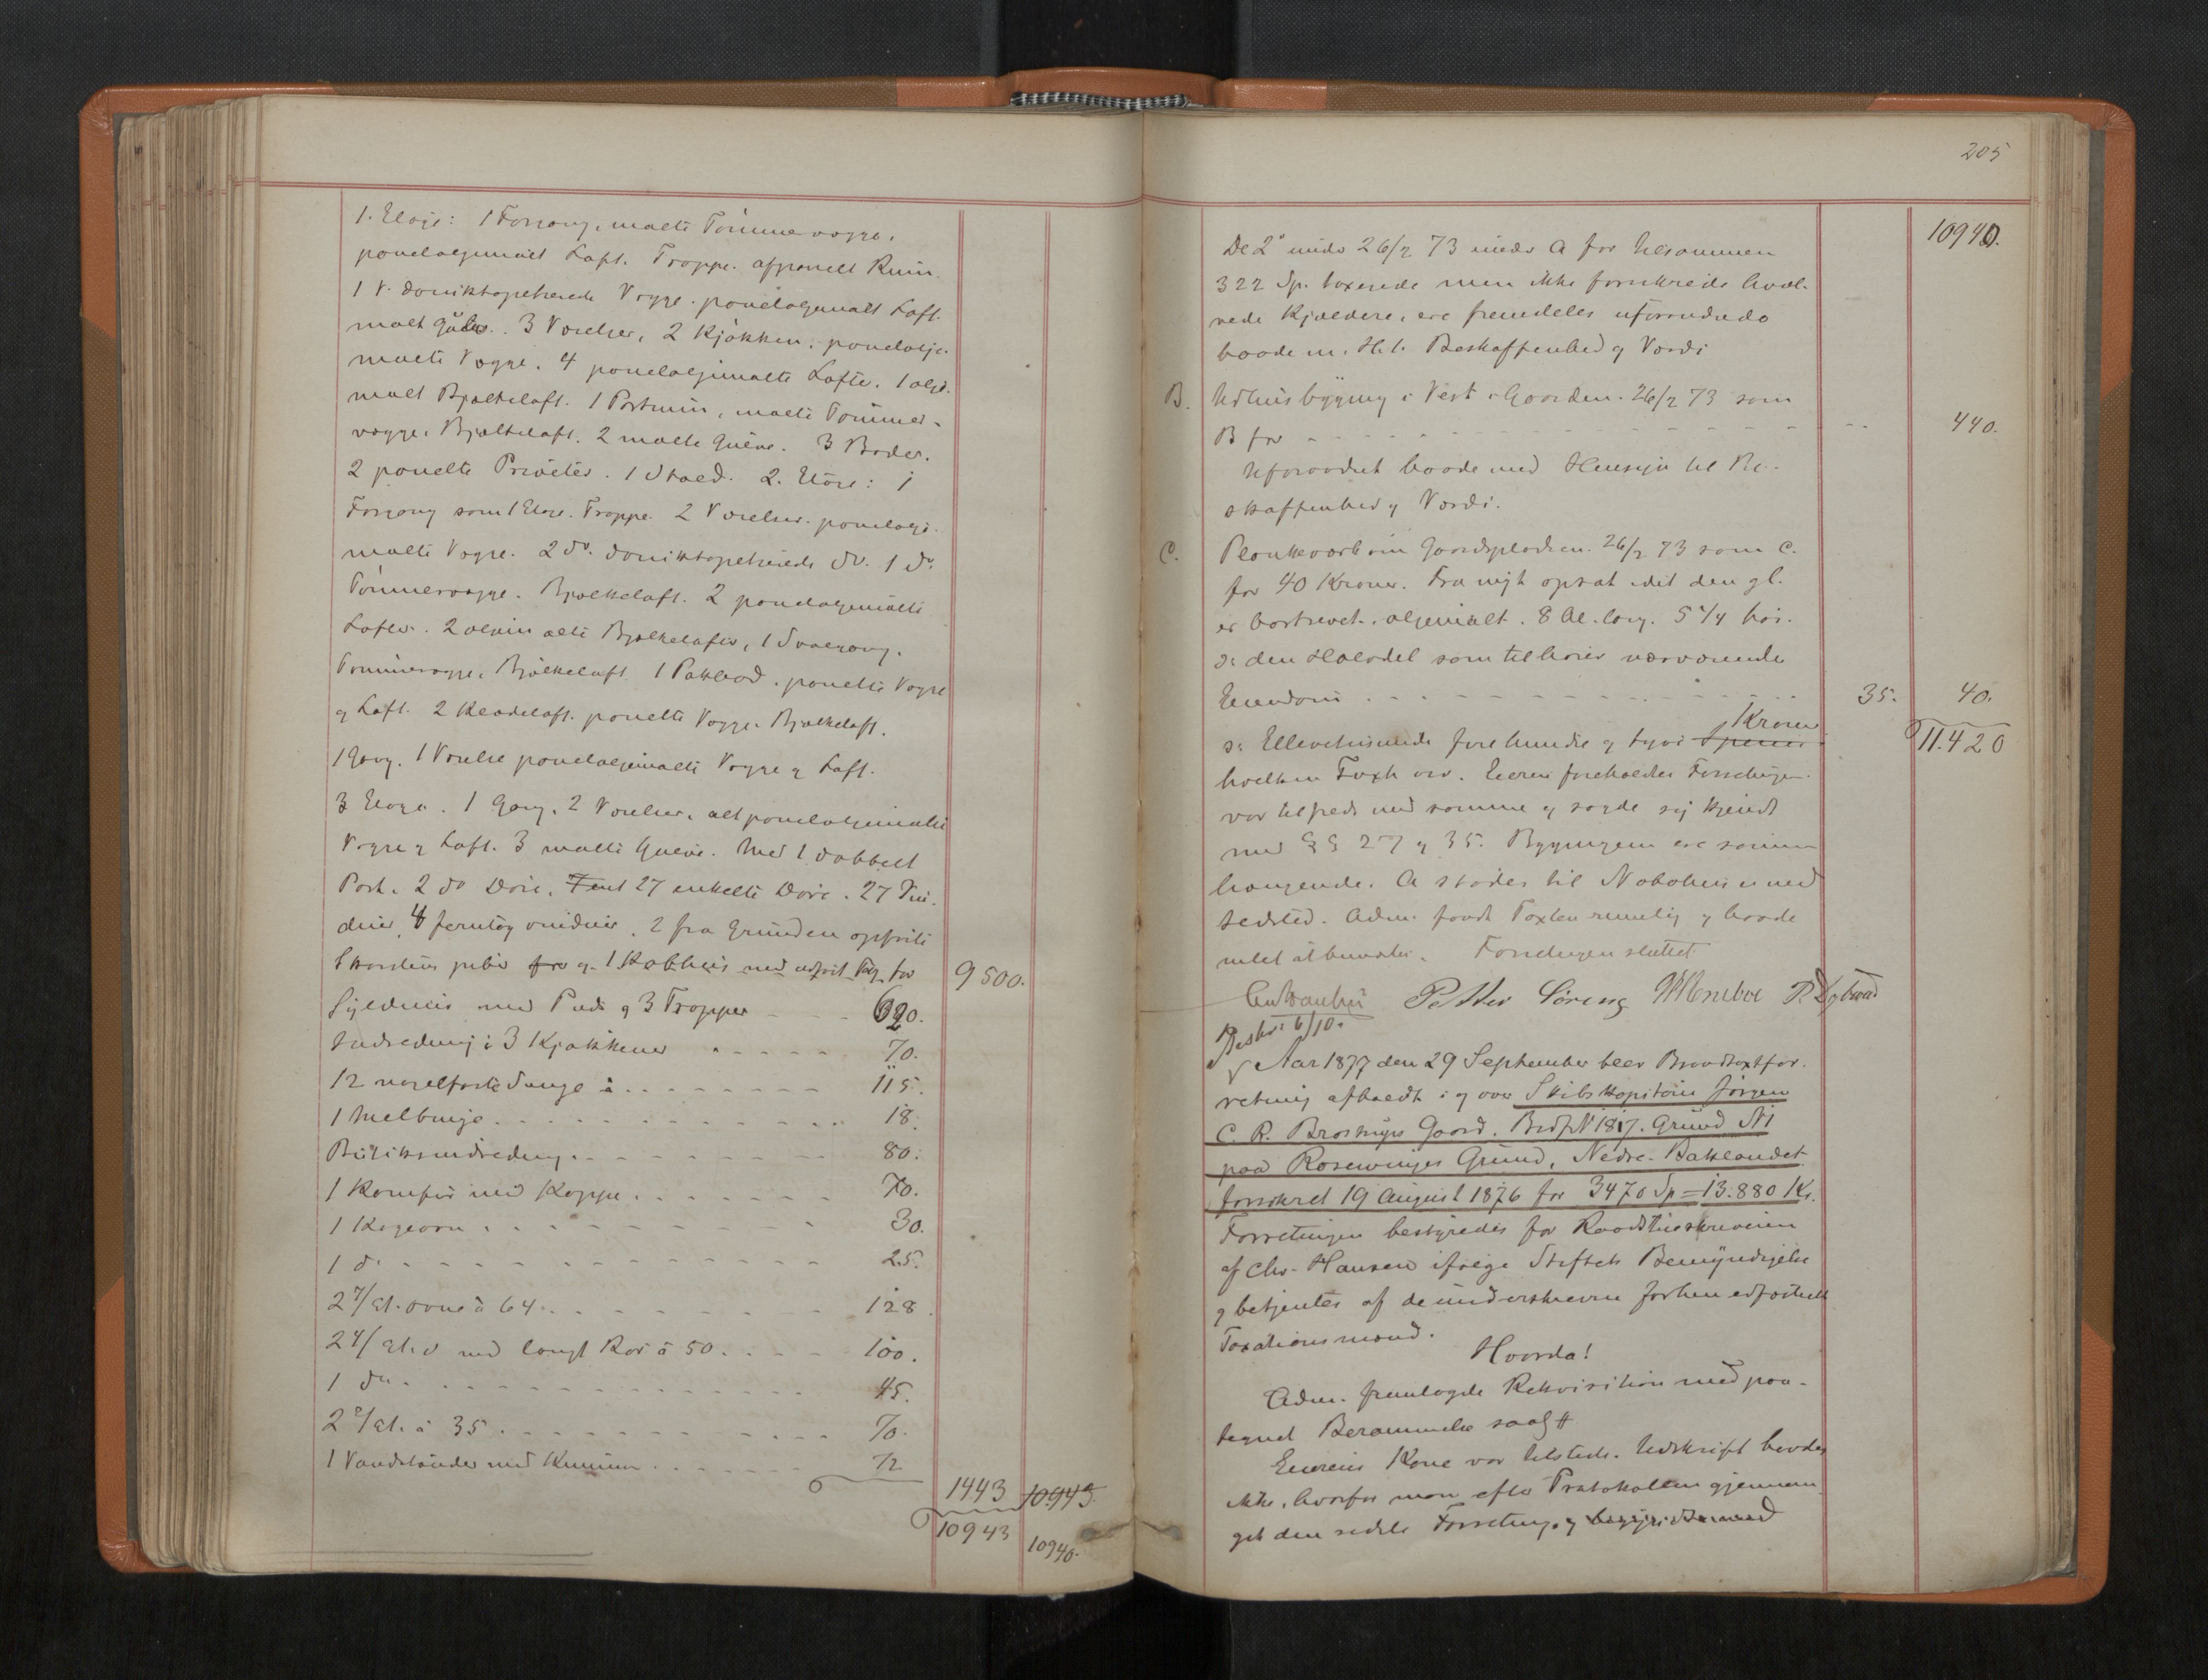 1. Etage: 1 Forgang, malte Tømmervægge,
paneloljemalt Loft. Trappe. afpanelt Rum.
1 V. doniktapetserede Vægge. paneloljemalt Loft.
malt Gulv. 3 Værelser, 2 Kjøkken, panelolje-
malte Vægge. 4 paneloljemalte Lofte. 1 olje-
malt Bjælkeloft. 1 malte Tømmer-
vægge. Bjælkeloft. 2 malte Gulve. 3 Boder.
2 panelte Priveter. 1 Stald. 2. Etage: 1
Forgang som 1 Etage. Trappe. 2 Værelser. panelolje-
malte Vægge. 2 do. doniktapetserede do. 1 do.
Tømmervægge. Bjælkeloft. 2 paneloljemalte
Lofter. 2 oljemalte Bjælkelofter, 1 Svalgang.
Tømmervægge, Bjælkeloft. 1 Pakbod. panelte Vægge
og Loft. 2 Kladeloft. panelte Vægge. Bjælkeloft.
1 Gang. 1 Værelse paneloljemalte Vægge og Loft.
3 Etage. 1 Gang. 2 Værelser, alt paneloljemalte
Vægge og Loft. 3 malte Gulve. Med 1 dobbelt
Port. 2 do Døre. 27 enkelte Døre. 27 Vin-
duer, 4 fernløg vinduer. 2 fra Grunden opførte
Skorstens piber og 1 med Tag for 9500.
Gyldmur med Puds og 3 Trapper 620.
Indredning i 3 Kjøkkener 70.
12 nagelfaste Senge à 115.
1 Melbinge 18.
Butiksindredning 80.
1 Komfur med Kappe 70.
1 Kogeovn 30.
1 do 25.
2 7/Et. ovne à 64 128.
2 4/Et. d med langt Rør à 50 100.
1 do 45.
2 2/Et. à 35 70.
1 Vandstander med Kummer 72
1443 10943.
10943 10940.
205
10940.
De 2de under 26/2 73 under A for tilsammen
322 Sp. taxerede men ikke forsikrede hvæl-
vede Kjældere, ere fremdeles uforandrede
baade m. H. t. Beskaffenhed og Værdi
B. Udhusbygning i Vest i Gaarden. 26/2 73 som
B for 440.
Uforandret baade med Hensyn til Be-
skaffenhed og Værdi.
C. Plankeværk om Gaardspladsen. 26/2 73 som C.
for 40 Kroner. Fra nyt opsat idet den gl.
er bortrevet. oljemalt. 8 Al. lang. 5 1/4 høi.
ɔ: den Halvdel som tilhører nærværende
Eiendom 35. 40.
Kroner
ɔ: Ellevetusinde fire hundre og tyve Specier 11.420
hvilken Taxt osv. Eieren foreholdtes Forretningen
var tilfreds med samme og sagde sig kjendt
med §§ 27 og 35. Bygningene ere sammen
hængende. A støder til Nabohuse ved
. Adm. fandt Taxten rimelig og havde
intet at bemærke. Forretningen sluttet
Petter Søreng
Beskr. 6/10.
Aar 1877 den 29 September blev Brandtaxtfor-
retning afholdt i og over Skibskaptein Jørgen
C. R. Gaard. Brdf. No 1817. Grund No 1
paa Rosenvinges Grund, Nedre Baklandet
forsikret 19 August 1876 for 3470 Sp = 13.880 Kr.
Forretningen bestyredes for Raadstueskriveren
af Chr. Hansen ifølge Stiftets Bemyndigelse
og betjentes af de underskrevne forhen edfæstede
Taxationsmænd.
Hvorda!
Adm. fremlagde Rekvisition med paa-
tegnet Berammelse saal.
Eierens Kone var tilstede. Udskrift havdes
ikke, hvorfor man efter Protokollen gjennem-
gik den sidste Forretning, og